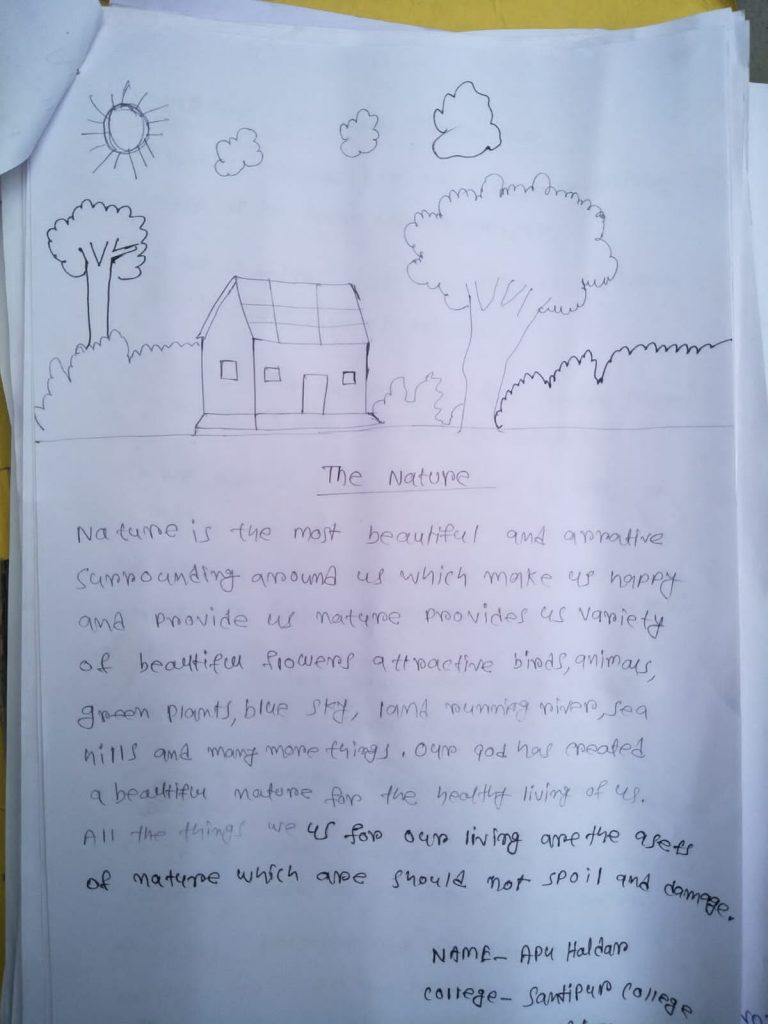 The Nature
Nature is the most beautiful and arrative
surrounding around us which make us happy
and provide us nature provides us variety
of beautiful flowers attractive birds, animals,
green plants, blue sky, land running river, sea
hills and many more things. Our god has created
a beautiful nature for the healthy living of us.
All the things we us for our living are the asets
of nature which are should not spoil and damage.
NAME- APU Haldar
College- Santipur College